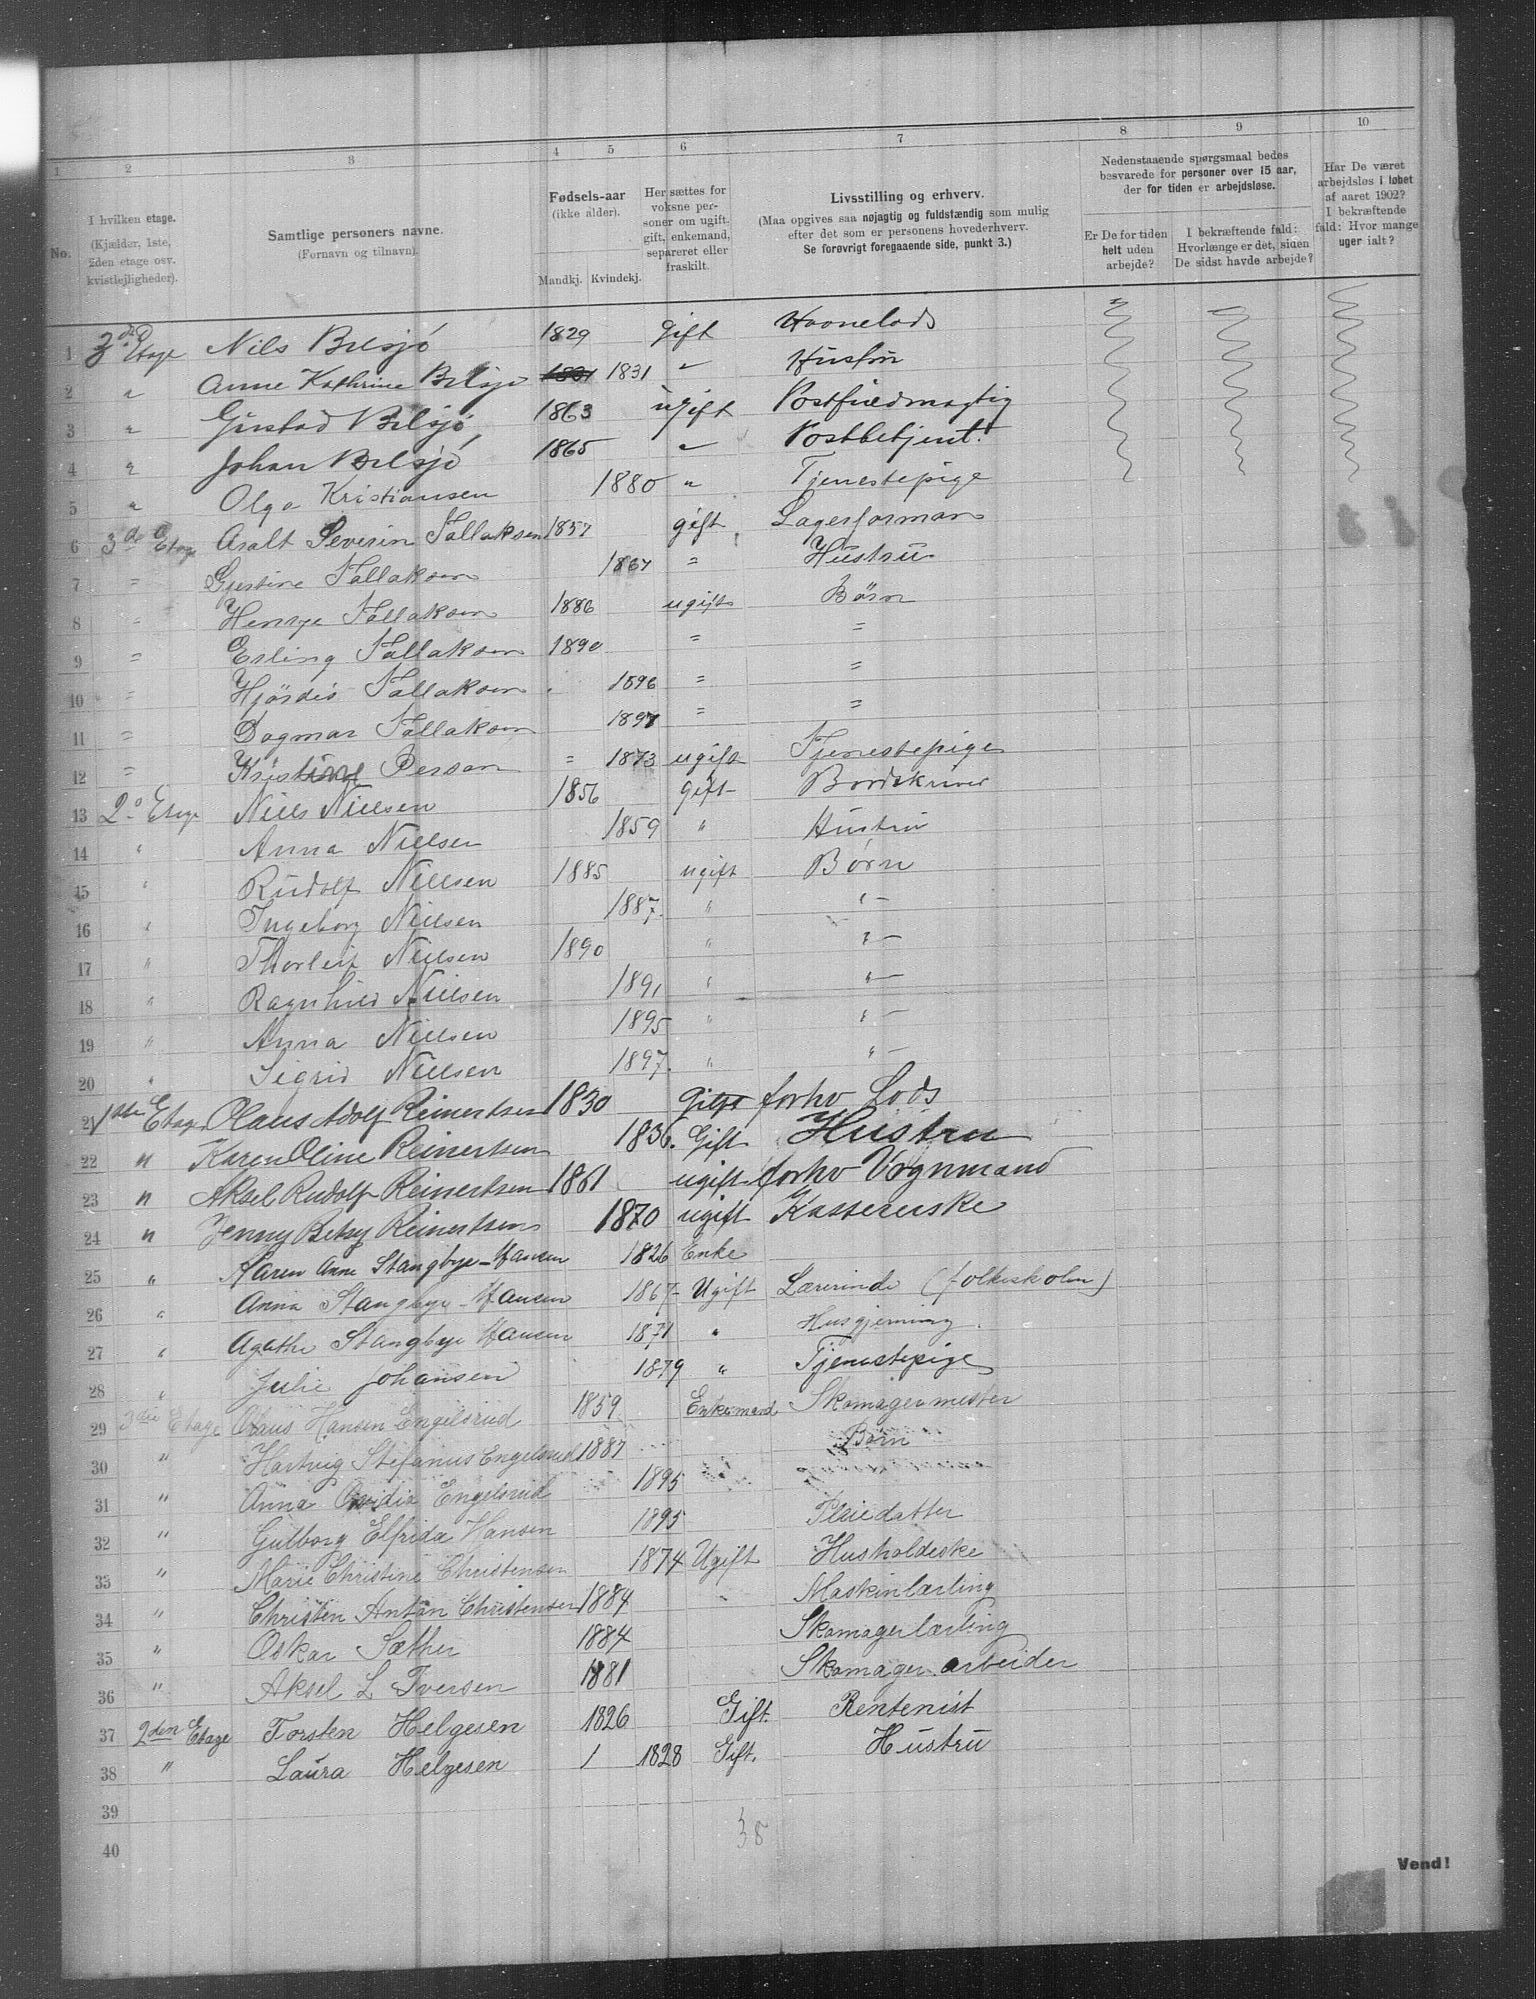 1 2 3 4 5 6 7 8 9 10
No.
I hvilken etage.
(Kjælder, 1ste,
2den etage osv.
kvistlejligheder).
Samtlige personers navne.
(Fornavn og tilnavn).
Fødsels-aar
(ikke alder).
Mandkj. Kvindekj.
Her sættes for
voksne per-
soner om ugift,
gift, enkemand,
separeret eller
fraskilt.
Livsstilling og erhverv.
(Maa opgives saa nøjagtig og fuldstændig som mulig
efter det som er personens hovederhverv.
Se forøvrigt foregaaende side, punkt 3.)
Nedenstaaende spørgsmaal bedes
besvarede for personer over 15 aar,
der for tiden er arbejdsløse.
Er De for tiden
helt uden
arbejde?
I bekræftende fald:
Hvorlænge er det, siden
De sidst havde arbejde?
Har De været
arbejdsløs i løbet
af aaret 1902?
I bekræftende
fald: Hvor mange
uger ialt?
1 3de Etage Nils Bilsjø 1829 gift Havnelods
2 " Anne Kathrine Bilsjø 1831 1831 " Husfru
3 " Gustav Bilsjø 1863 ugift Postfuldmægtig
4 " Johan Bilsjø 1865 " Postbetjent
5 " Olga Kristiansen 1880 " Tjenestepige
6 3de Etage Asalt Severin Tallaksen 1857 gift Lagerforman
7 " Gjestine Tallaksen 1867 " Hustru
8 " Tallaksen 1886 ugift Børn
9 " Erling Tallaksen 1890 " "
10 " Hjørdis Tallaksen 1896 " "
11 " Dagmar Tallaksen 1897 " "
12 " Kristine Person " 1873 ugift Tjenestepige
13 2 Etage Niels Nielsen 1856 gift Bordskriver
14 " Anna Nielsen 1859 " Hustru
15 " Rudolf Nielsen 1885 ugift Børn
16 " Ingeborg Nielsen 1887. " " -
17 " Thorleif Nielsen 1890 " " -
18 " Ragnhild Nielsen 1891 " " -
19 " Anna Nielsen 1895 " " -
20 " Sigrid Nielsen 1897. " " -
21 1ste Etage Olaus Adolf Reinertsen 1830 Gift forhv Lods
22 " Karen Oline Reinertsen 1836. Gift Hustru
23 " Aksel Rudolf Reinertsen 1861 ugift forhv Vognmand
24 " Jenny Betsy Reinertsen 1870 ugift Kassererske
25 " Karen Anne Stangbye-Hansen 1826 Enke
26 " Anna Stangbye-Hansen 1867 - Ugift Lærerinde (folkeskolen)
27 " Agathe Stangbye Hansen 1871 " Husgjerning.
28 " Julie Johansen 1879 " Tjenestepige
29 3die Etage Olaus Hansen Engelsrud 1859 Enkemand Skomagermester
30 " Hartvig Stefanus Engelsrud 1887 Børn
31 " Anna Engelsrud 1895
32 " Gulborg Elfrida Hansen 1895 Pleiedatter
33 " Marie Christine Christensen 1874 Ugift Husholdeske
34 " Christen Anton Christensen 1884 Maskinlærling
35 " Oskar Sæther 1884 Skomagerlærling
36 " Aksel L Iversen 1881 Skomager arbeider
37 2den Etage Torsten Helgesen 1826 Gift. Rentenist
38 " Laura Helgesen / 1828 Gift. Hustru
39
40
38
Vend!